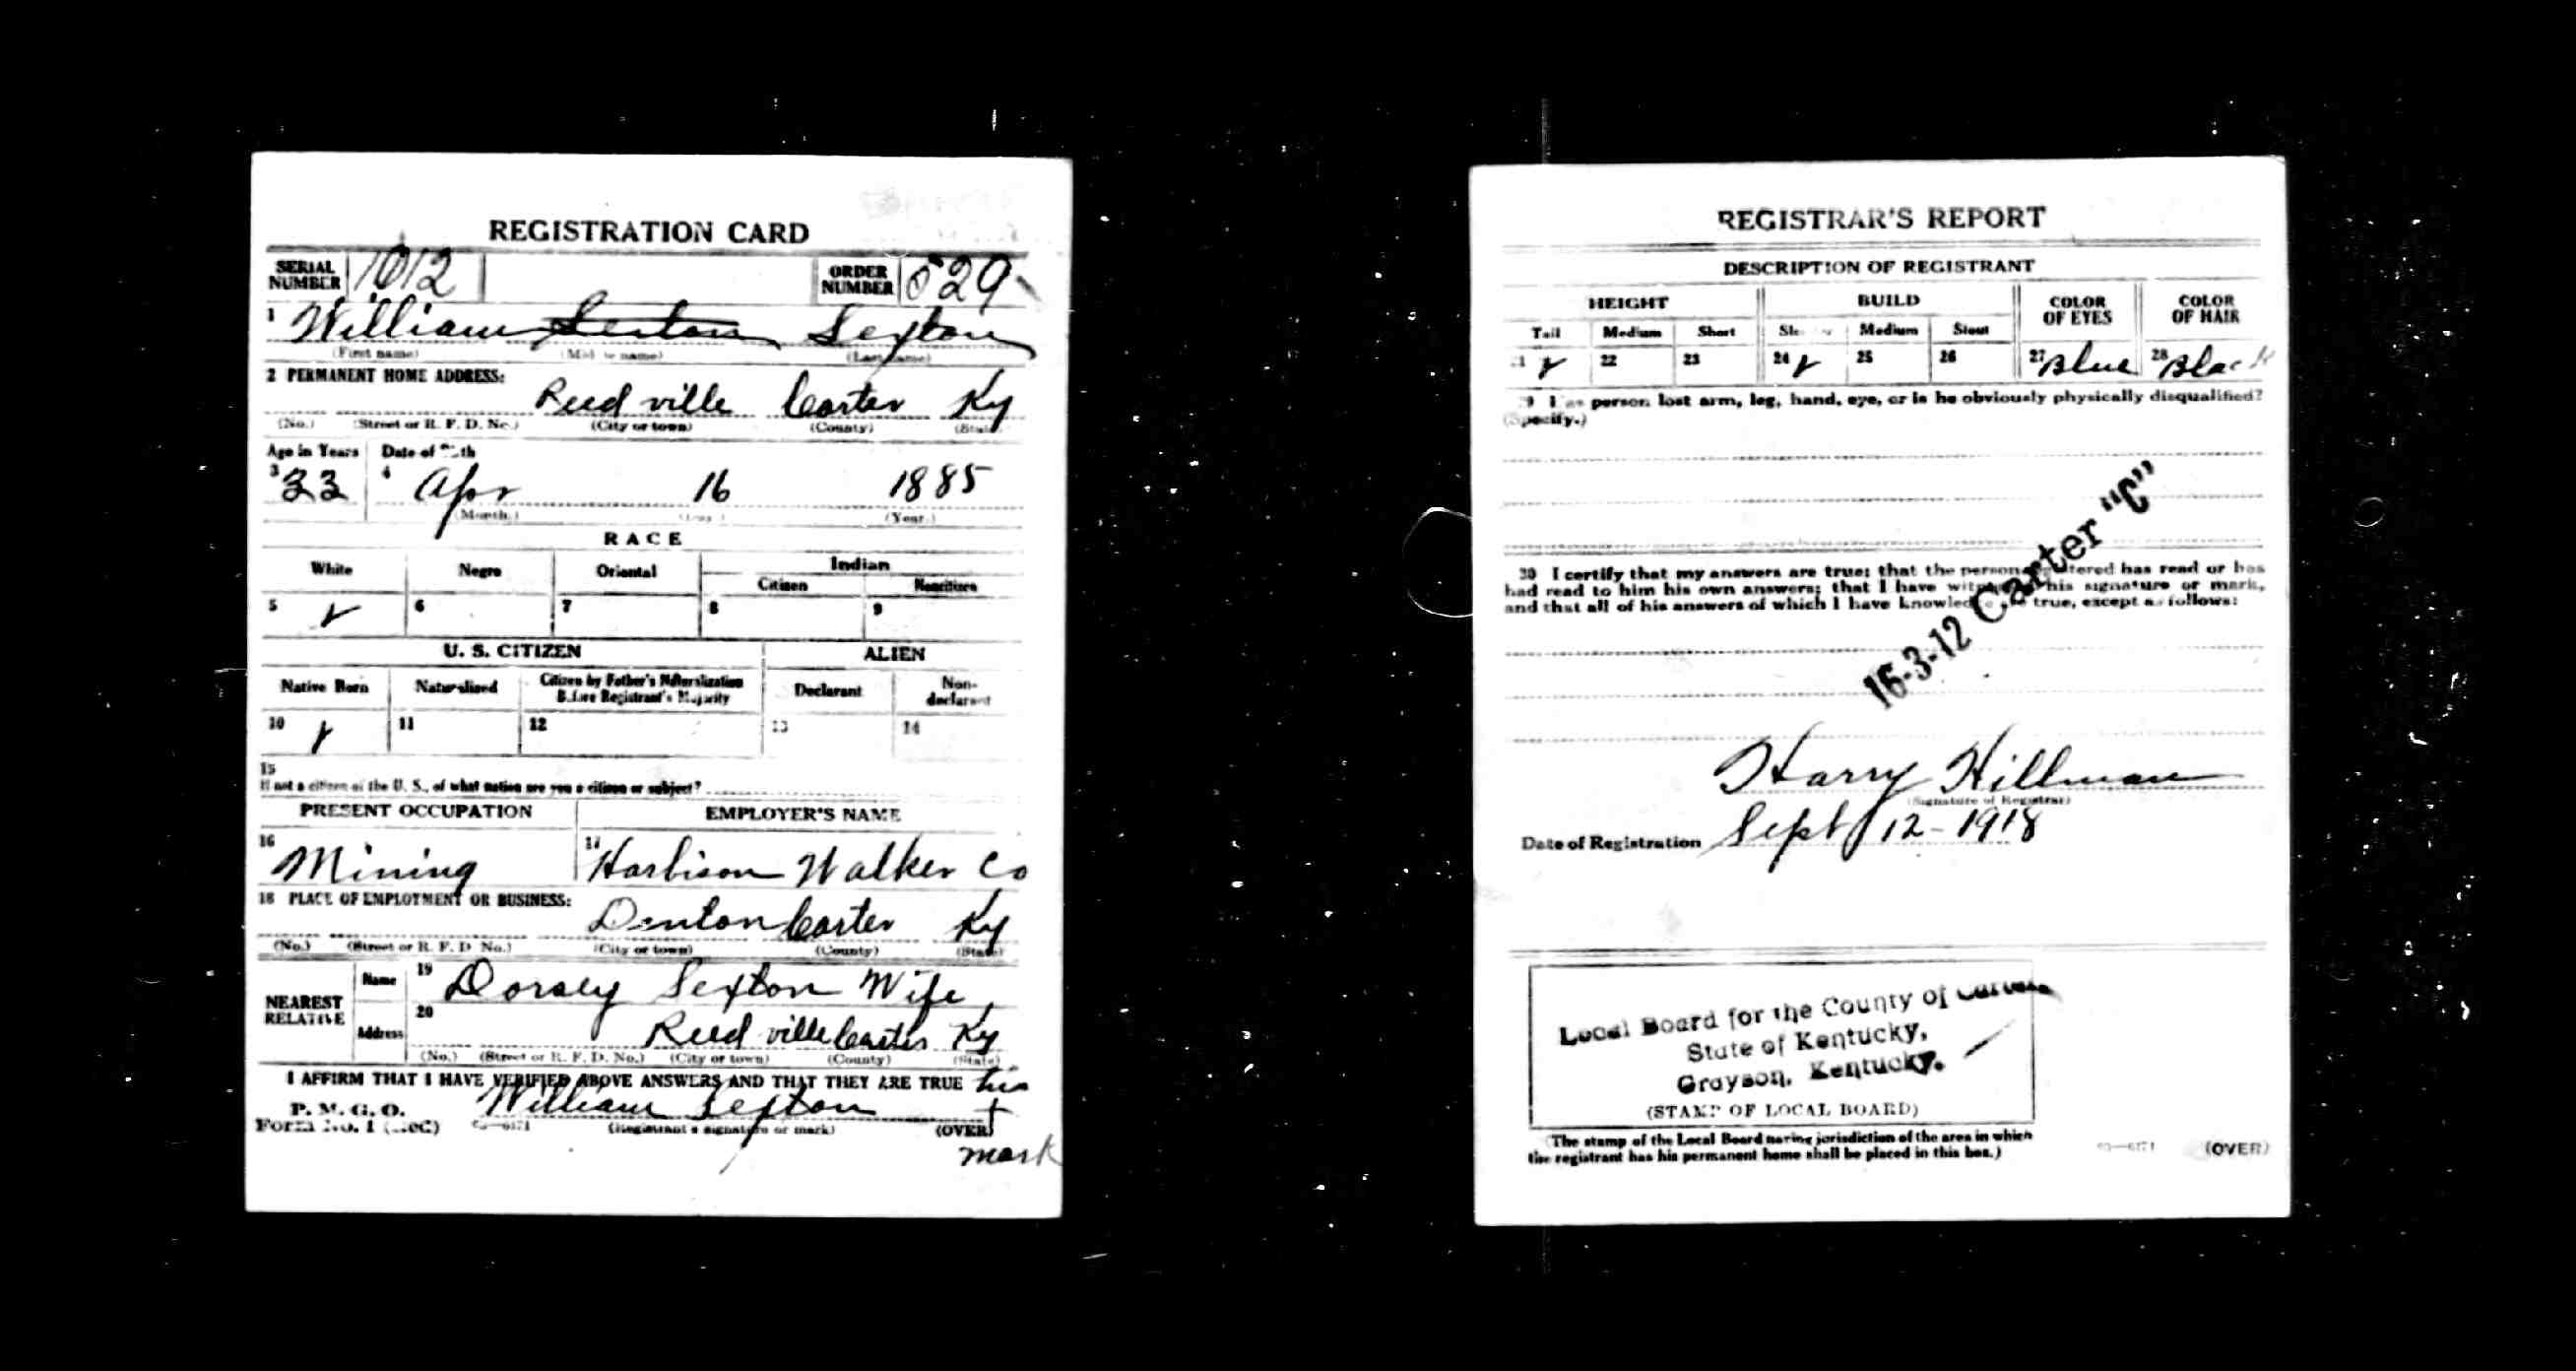 REGISTRATION CARD
SERIAL NUMBER 1012 ORDER NUMBER 529
1 William Sexton Sexton
(First name) (Middle name) (Last name)
2 PERMANENT HOME ADDRESS:
Reedville Carter Ky
(No.) (Street or R. F. D. No.) (City or town) (County) (State)
Age in Years Date of Birth
3 33 4 Apr 16 1885
(Month.) (Day.) (Year.)
RACE
White Negro Oriental Indian
Citizen Noncitizen
5 ✓ 6 7 8 9
U. S. CITIZEN ALIEN
Native Born Naturalized Citizen by Father's Naturalization Before Registrant's Majority Declarant Non-declarant
10 ✓ 11 12 13 14
15
If not a citizen of the U. S., of what nation are you a citizen or subject?
PRESENT OCCUPATION EMPLOYER'S NAME
16 Mining 17 Harbison Walker Co
18 PLACE OF EMPLOYMENT OR BUSINESS:
Denton Carter Ky
(No.) (Street or R. F. D. No.) (City or town) (County) (State)
NEAREST RELATIVE Name 19 Dorsey Sexton Wife
Address 20 Reedville Carter Ky
(No.) (Street or R. F. D. No.) (City or town) (County) (State)
I AFFIRM THAT I HAVE VERIFIED ABOVE ANSWERS AND THAT THEY ARE TRUE his
P. M. G. O.
Form No. 1 (Red) William Sexton +
(Registrant's signature or mark) (OVER)
mark
REGISTRAR'S REPORT
DESCRIPTION OF REGISTRANT
HEIGHT BUILD COLOR OF EYES COLOR OF HAIR
Tall Medium Short Slender Medium Stout
21 ✓ 22 23 24 ✓ 25 26 27 Blue 28 Black
29 Has person lost arm, leg, hand, eye, or is he obviously physically disqualified?
(Specify.)
30 I certify that my answers are true; that the person registered has read or has
had read to him his own answers; that I have witnessed his signature or mark,
and that all of his answers of which I have knowledge are true, except as follows:
16-3-12 Carter "C"
Harry Hillman
(Signature of Registrar)
Date of Registration Sept 12-1918
Local Board for the County of Carter
State of Kentucky,
Grayson, Kentucky.
(STAMP OF LOCAL BOARD)
(The stamp of the Local Board having jurisdiction of the area in which
the registrant has his permanent home shall be placed in this box.)
(OVER)